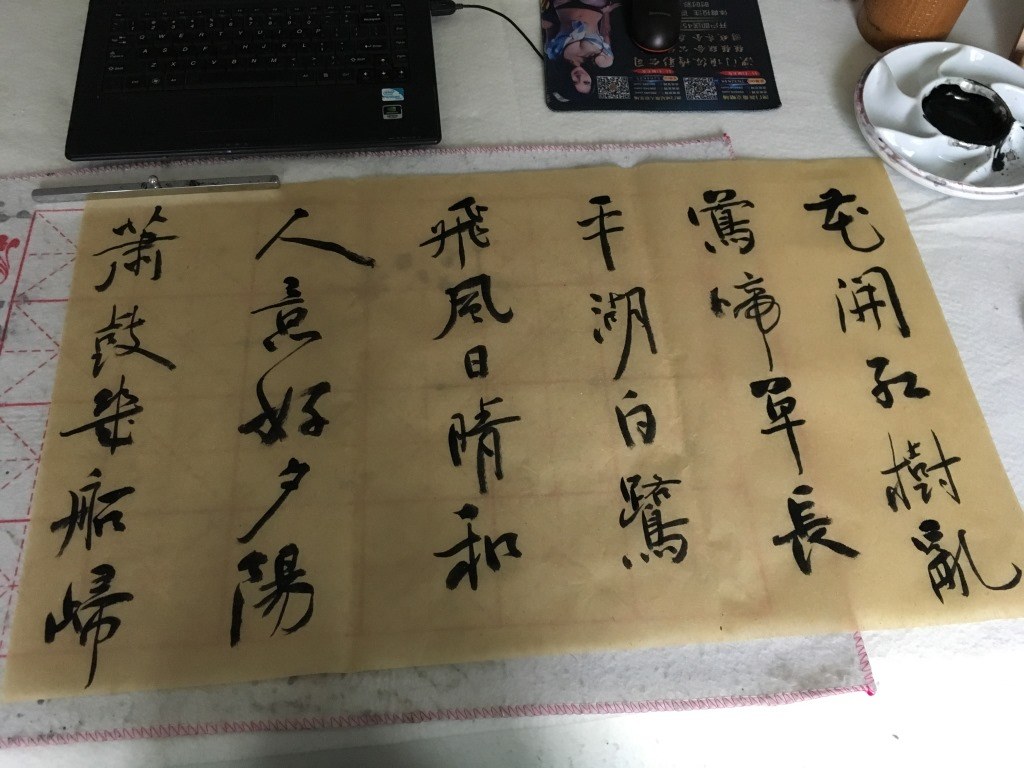 花開紅樹亂
鶯啼草長
平湖白鷺
飛風日晴和
人意好夕陽
簫鼓幾船歸